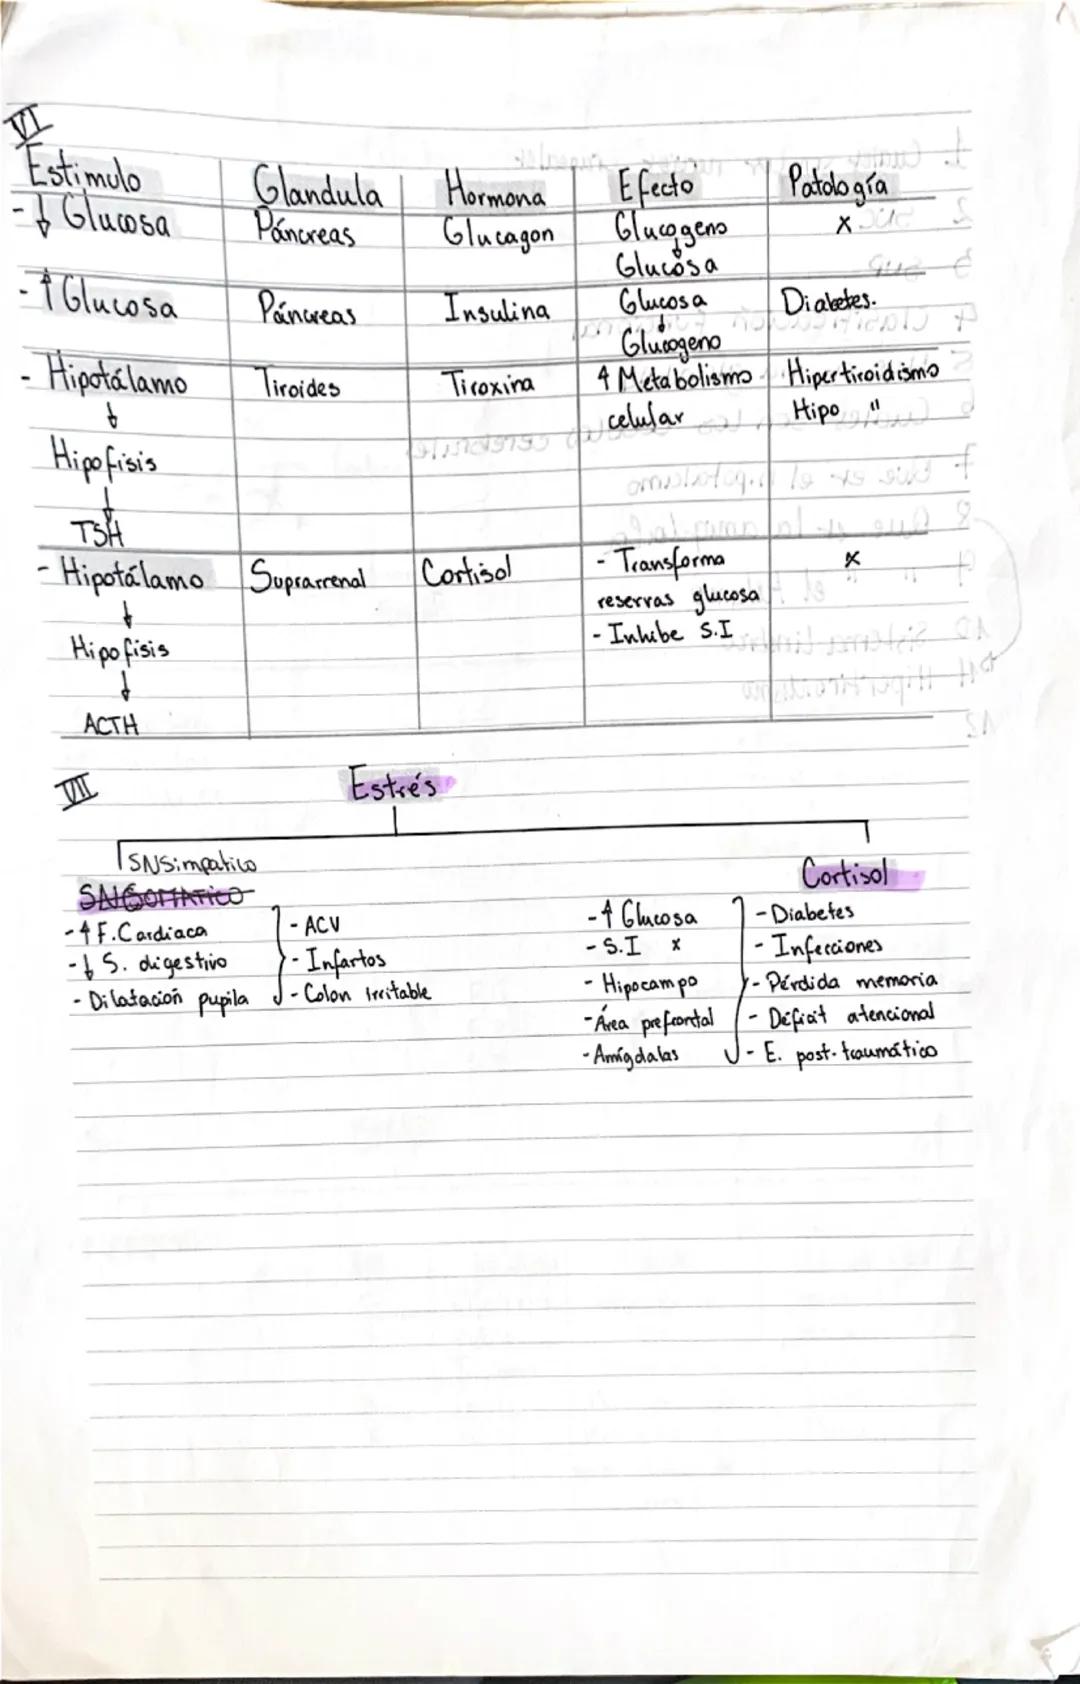 VI
Estimulo Glandula Hormona Efecto Patología
- ↓ Glucosa Páncreas Glucagon Glucogeno x
↓
Glucosa
- ↑ Glucosa Páncreas Insulina Glucosa Diabetes.
↓
Glucogeno
- Hipotálamo Tiroides Tiroxina ↑ Metabolismo Hipertiroidismo
↓ celular Hipo "
Hipofisis
↓
TSH
- Hipotálamo Suprarrenal Cortisol - Transforma x
↓ reservas glucosa
Hipofisis - Inhibe S.I
↓
ACTH
VII Estrés
SNSimpatico Cortisol
SNSOMATICO
- ↑ F. Cardiaca - ACV - ↑ Glucosa - Diabetes
- ↓ S. digestivo - Infartos - S.I x - Infecciones
- Dilatación pupila - Colon Irritable - Hipocampo - Pérdida memoria
- Área prefrontal - Déficit atencional
- Amígdalas - E. post-traumático